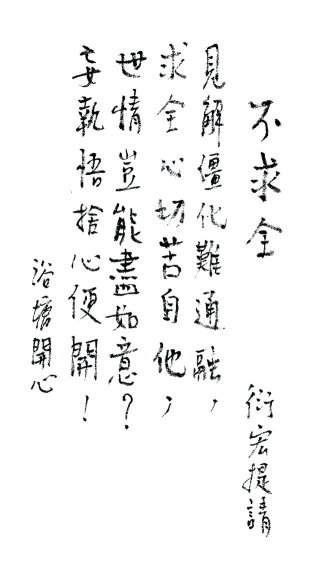 不求全
衍宏提請
見解僵化難通融，
求全心切苦自他，
世情豈能盡如意？
妄執悟捨心便開！
浴塘開心